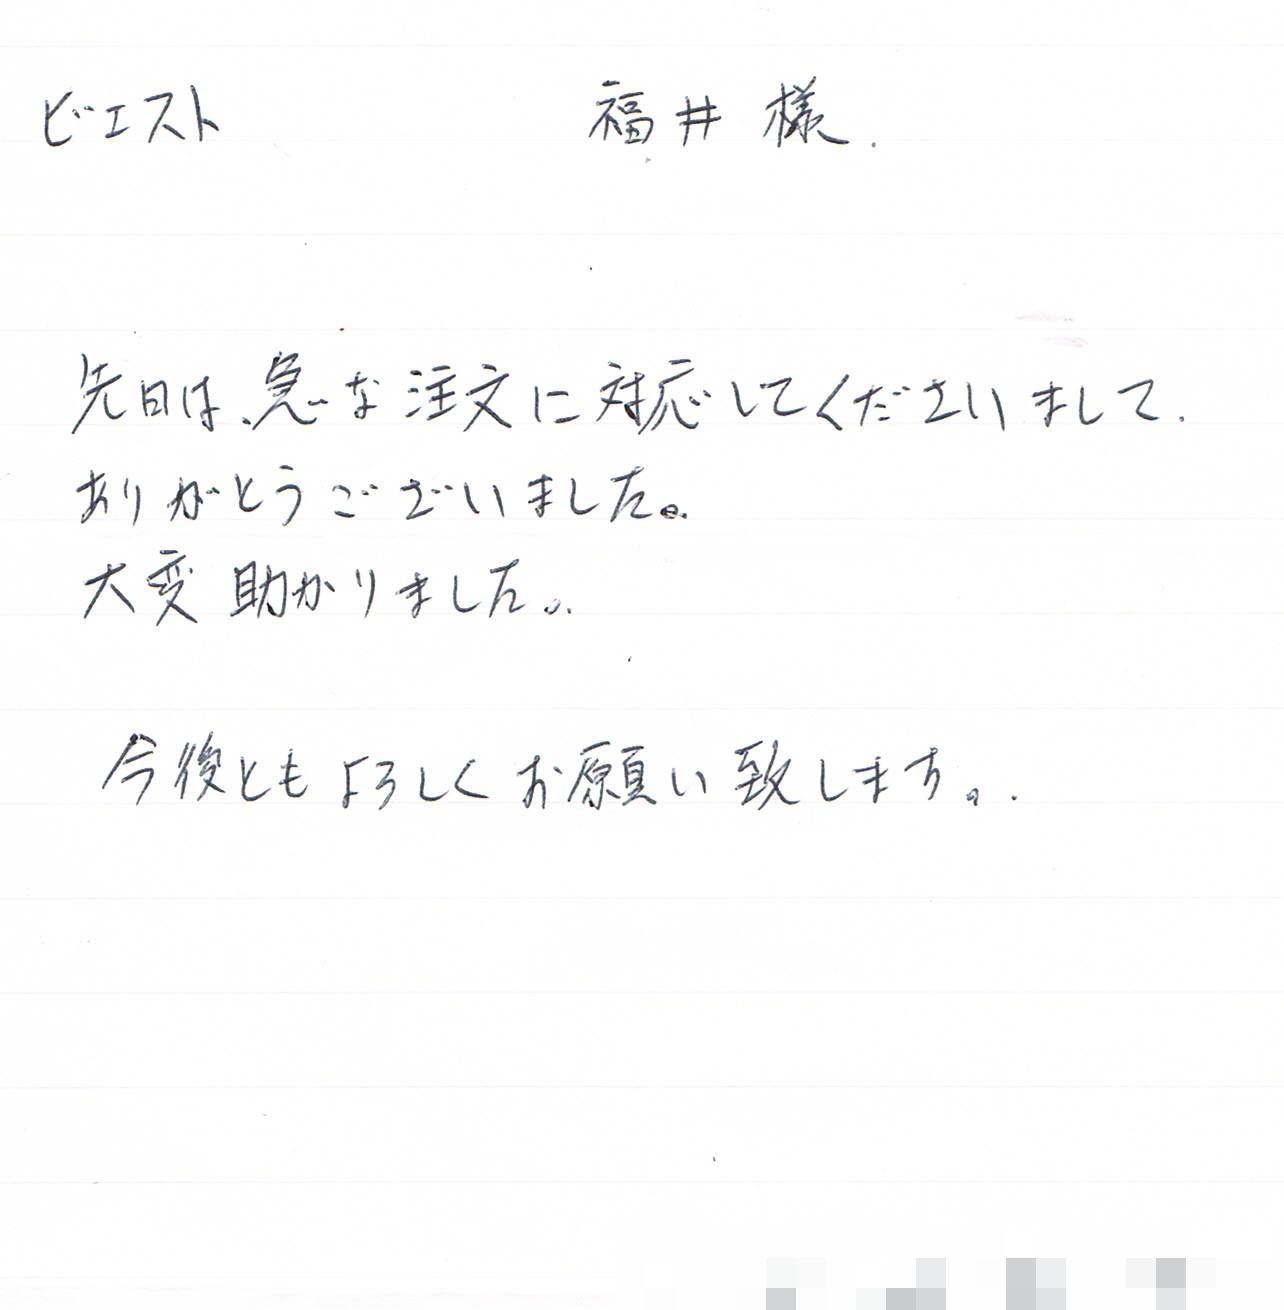 ビエスト 福井 様.
先日は、急な注文に対応してくださいまして.
ありがとうございました。
大変助かりました。
今後ともよろしくお願い致します。